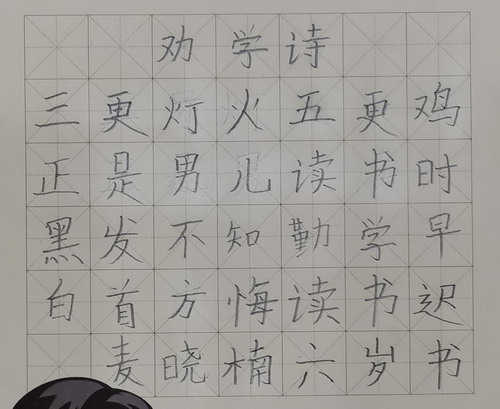 劝学诗
三更灯火五更鸡
正是男儿读书时
黑发不知勤学早
白首方悔读书迟
麦晓楠六岁书